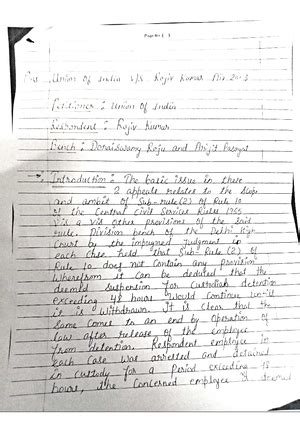 Page No. ( )
Union of India v/s Rajiv Kumar Air. 2003
Petitioner : Union of India
Respondent : Rajiv Kumar
Bench : Doraiswamy Raju and Arijit Pasayat
Introduction : The basic issue in these
2 appeals relates to the scope
and ambit of Sub-rule (2) of Rule 10
of the Central Civil Services Rules 1965
vis a vis other provisions of the said
rule, Division bench of the Delhi High
Court by the impugned Judgment in
each case held that Sub-Rule (2) of
Rule 10 does not Contain any Provision
Wherefrom it Can be deduced that the
deemed Suspension for Custodial detention
exceeding 48 hours Would Continue until
it is Withdrawn. It is clear that the
Same Comes to an end by Operation of
law after release of the employee
from detention. Respondent employee in
each Case Was arrested and detained
in custody for a Period exceeding 48
hours, the Concerned employee is deemed